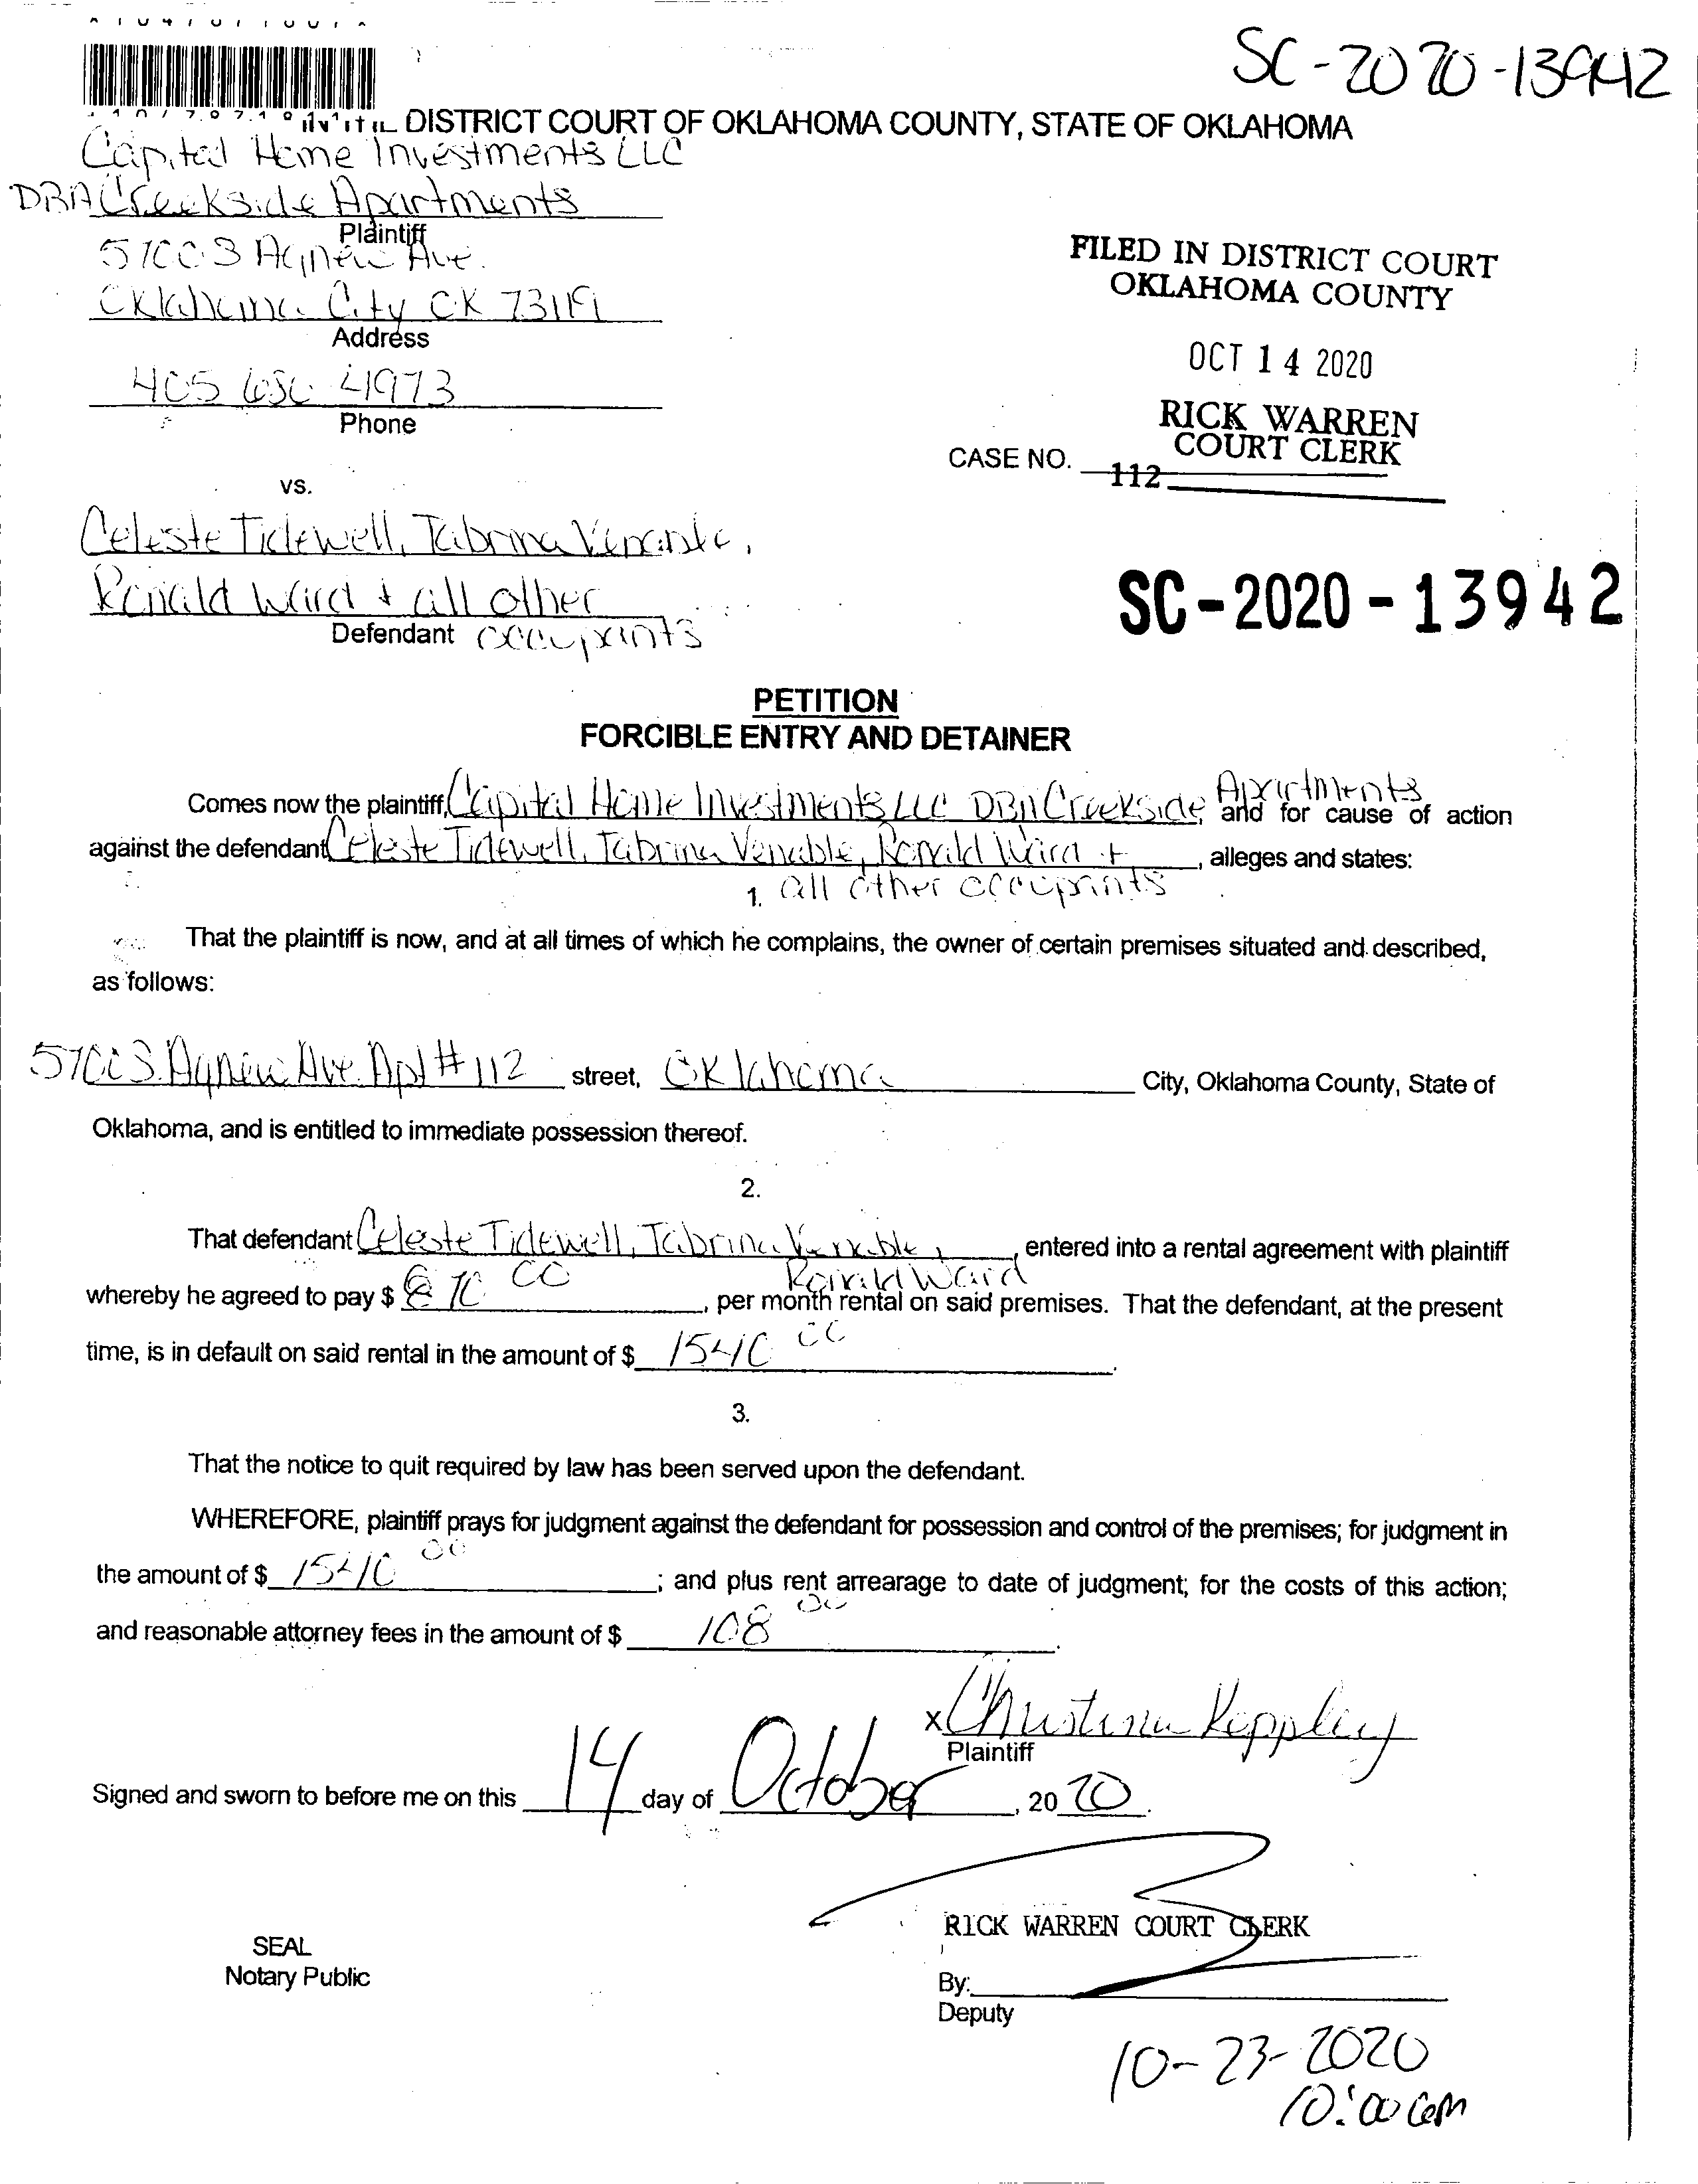 SC-2020-13942
DISTRICT COURT OF OKLAHOMA COUNTY, STATE OF OKLAHOMA
Capital Home Investments LLC
DBA Creekside Apartments
Plaintiff
5700 S Agnew Ave.
Oklahoma City OK 73119
Address
405 4973
Phone
vs.
Celeste Tidewell, Tabrina Venable,
Ronald Ward + all other
Defendant occupants
FILED IN DISTRICT COURT
OKLAHOMA COUNTY
OCT 14 2020
RICK WARREN
COURT CLERK
CASE NO.
112
SC-2020-13942
PETITION
FORCIBLE ENTRY AND DETAINER
Comes now the plaintiff, Capital Home Investments LLC DBA Creekside Apartments and for cause of action
against the defendant Celeste Tidewell, Tabrina Venable, Ronald Ward + , alleges and states:
1. all other occupants
That the plaintiff is now, and at all times of which he complains, the owner of certain premises situated and described,
as follows:
5700 S. Agnew Ave. Apt # 112 street, Oklahoma City, Oklahoma County, State of
Oklahoma, and is entitled to immediate possession thereof.
2.
That defendant Celeste Tidewell, Tabrina Venable, , entered into a rental agreement with plaintiff
Ronald Ward
whereby he agreed to pay $ 00 , per month rental on said premises. That the defendant, at the present
time, is in default on said rental in the amount of $ 1540 00 .
3.
That the notice to quit required by law has been served upon the defendant.
WHEREFORE, plaintiff prays for judgment against the defendant for possession and control of the premises; for judgment in
the amount of $ 1540 00 ; and plus rent arrearage to date of judgment; for the costs of this action;
and reasonable attorney fees in the amount of $ 108 00 .
x Christina Keppley
Plaintiff
Signed and sworn to before me on this 14 day of October , 20 20 .
RICK WARREN COURT CLERK
SEAL
Notary Public
By:
Deputy
10-23-2020
10:00 am